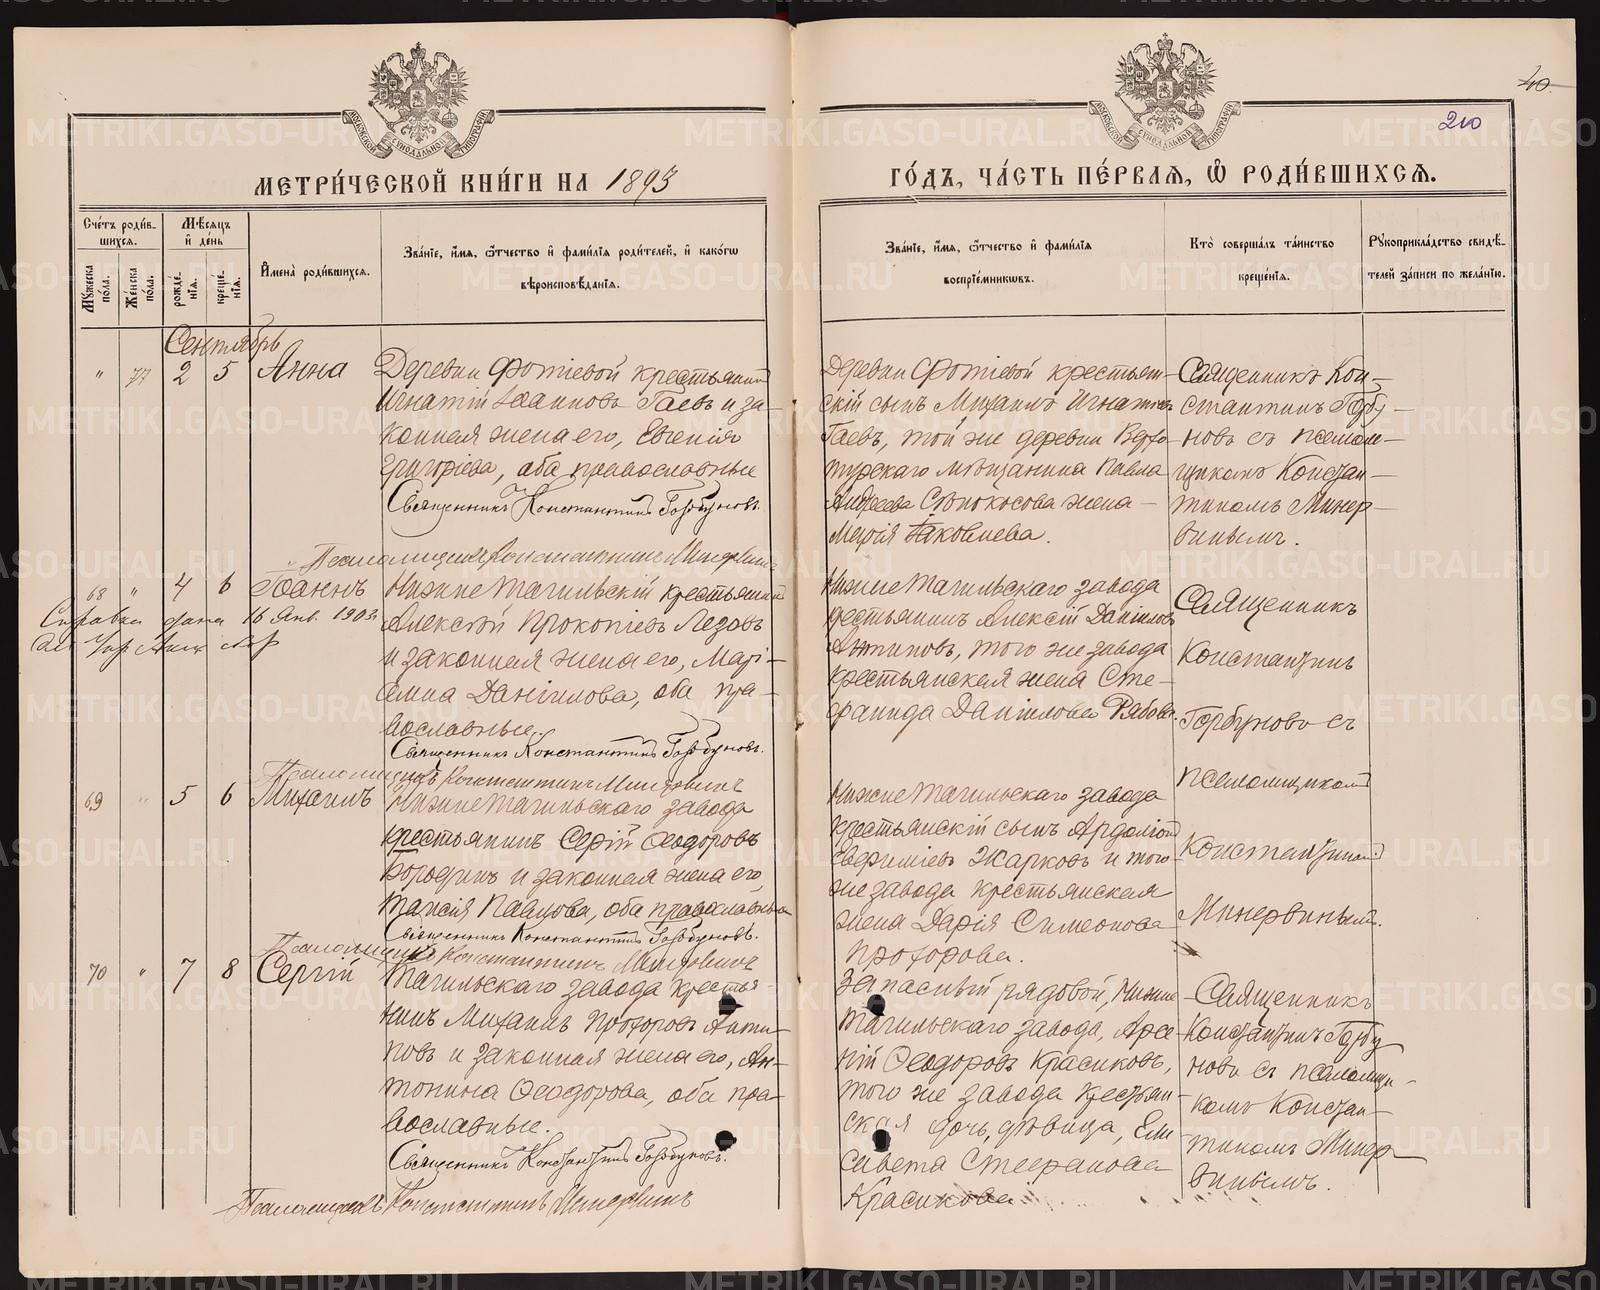 40
210
МЕТРИ́ЧЕСКОЙ КНИ́ГИ НА 1893
ГО́ДЪ, ЧА́СТЬ ПЕ́РВАЯ, Ѿ РОДИ́ВШИХСЯ.
Сче́тъ роди́в-
шихся.
Мѣ́сяцъ
и҆ де́нь
Мꙋ́жеска
по́ла.
Же́нска
по́ла.
рожде́-
нїѧ.
креще́-
нїѧ.
И҆мена̀ роди́вшихся.
Зва́нїе, и҆́мѧ, ѻ҆́тчество и҆ фами́лїѧ роди́телей, и҆ како́гѡ
вѣроисповѣ́данїѧ.
Зва́нїе, и҆́мѧ, ѻ҆́тчество и҆ фами́лїѧ
воспрїе́мникѡвъ.
Кто̀ соверша́лъ та́инство
креще́нїѧ.
Рꙋкоприкла́дство свидѣ́-
телей за́писи по жела́нїю.
Сентябрь
" 77 2 5 Анна
Деревни Фотіевой крестьянинъ
Игнатій Іоанновъ Гаевъ и за-
конная жена его, Евгенія
Григоріева, оба православные
Священникъ Константинъ Горбуновъ.
Псаломщикъ Константинъ Минервинъ
Деревни Фотіевой крестьян-
скій сынъ Михаилъ Игнатіевъ
Гаевъ, той же деревни Верхо-
турскаго мѣщанина Павла
Андреева жена
Марія Іаковлева.
Священникъ Кон-
стантинъ Горбу-
новъ съ псалом-
щикомъ Констан-
тиномъ Минер-
винымъ.
68 " 4 6 Іоаннъ
Справка дана 16 Янв. 1903
Нижне Тагильскій крестьянинъ
Алексѣй Прокопіевъ Лезовъ
и законная жена его, Марі-
амна Даніилова, оба пра-
вославные.
Священникъ Константинъ Горбуновъ.
Псаломщикъ Константинъ Минервинъ
Нижне Тагильскаго завода
крестьянинъ Алексій Даніиловъ
Антиповъ, того же завода
крестьянская жена Сте-
фанида Даніилова Рябова.
Священникъ
Константинъ
Горбуновъ съ
псаломщикомъ
Константиномъ
Минервинымъ.
69 " 5 6 Михаилъ
Нижне Тагильскаго завода
крестьянинъ Сергій Ѳеодоровъ
Бородинъ и законная жена его,
Таисія Павлова, оба православные
Священникъ Константинъ Горбуновъ.
Псаломщикъ Константинъ Минервинъ
Нижне Тагильскаго завода
крестьянскій сынъ
Жарковъ и того
же завода крестьянская
жена Дарія Симеонова
Прохорова.
70 " 7 8 Сергій
Тагильскаго завода крестья-
нинъ Михаилъ Прохоровъ Анти-
повъ и законная жена его, Ан-
тонина Ѳеодорова, оба пра-
вославные.
Священникъ Константинъ Горбуновъ.
Псаломщикъ Константинъ Минервинъ
Запасный рядовой, Нижне
Тагильскаго завода, Арсе-
ній Ѳеодоровъ Красиковъ,
того же завода крестьян-
ская дочь, дѣвица, Ели-
савета Стефанова
Красикова.
Священникъ
Константинъ Горбу-
новъ съ псаломщи-
комъ Констан-
тиномъ Минер-
винымъ.